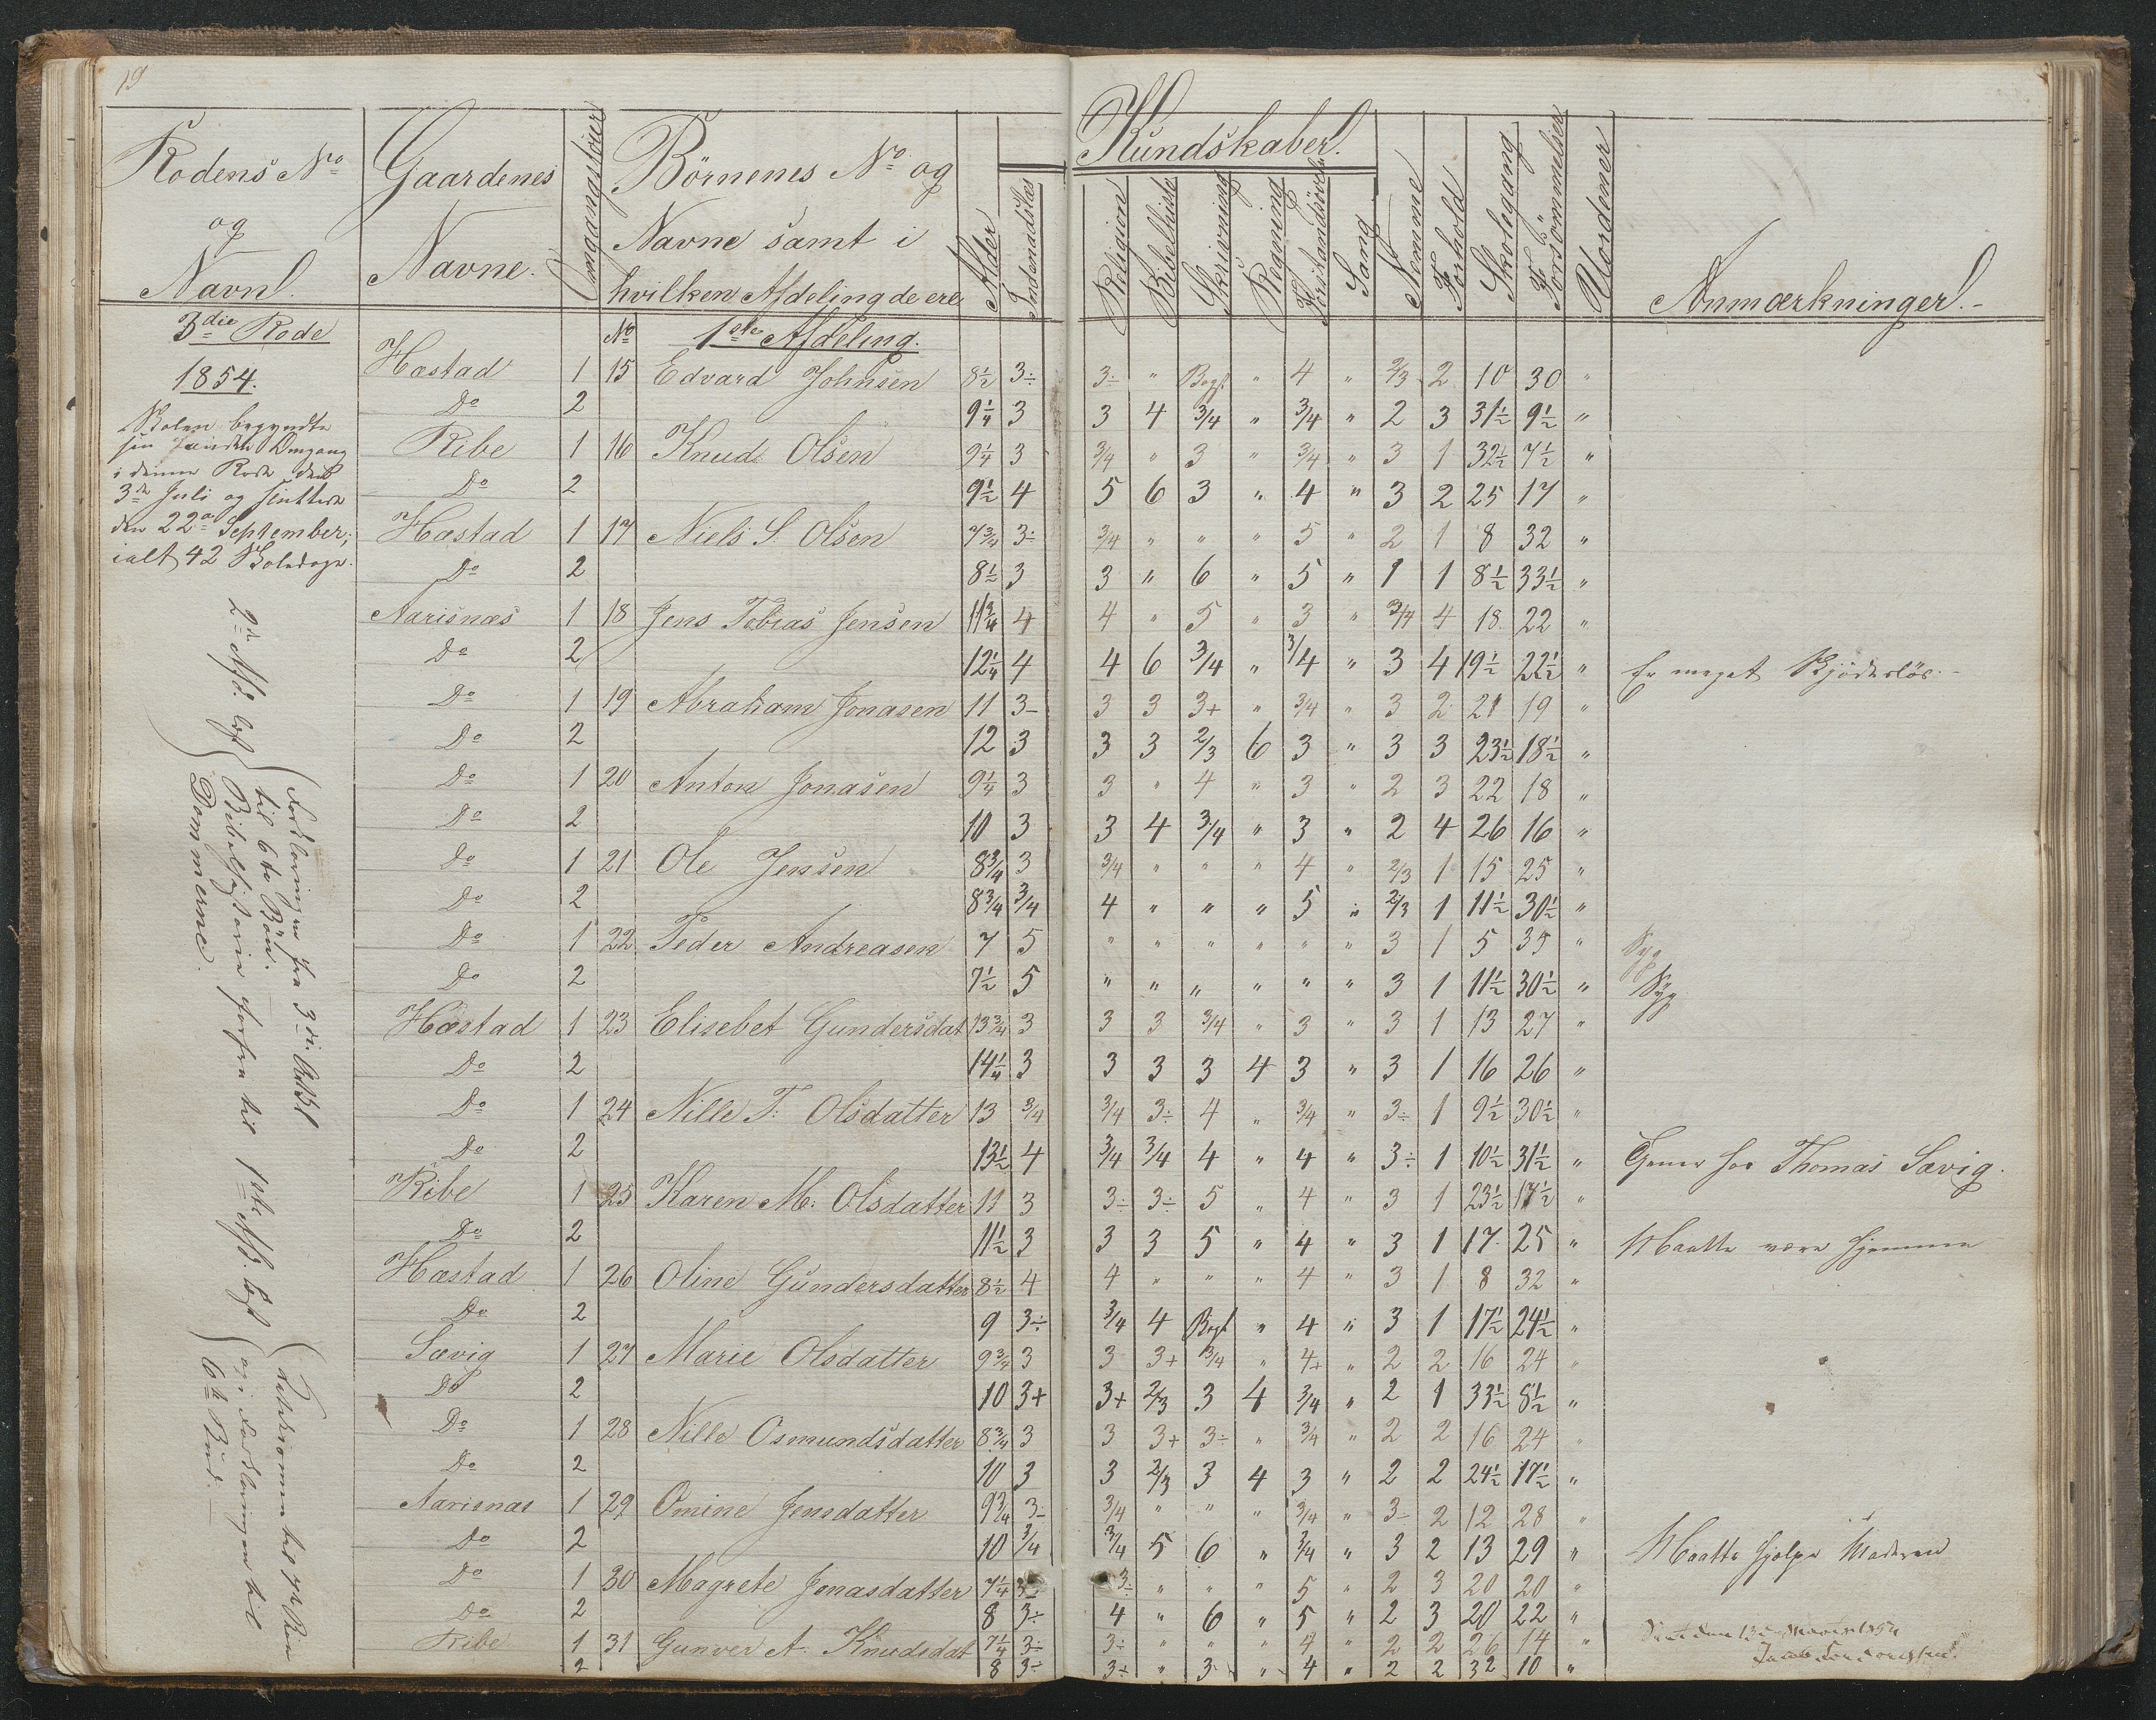 19
Rodens No og Navn.
Gaardenes Navne.
Omgangstøier
Börnenes No og Navne samt i hvilken Afdeling de ere
Alder
Indenadslæs
Kundskaber.
Religion
Bibelhisto
Skrivning
Regning
Forstandsövels
Sang
Nemme
Forhold
Skolegang
Forsömmelser
Uordener
Anmærkninger.
3die Rode
No 1ste Afdeling.
1854.
Skolen begyndte
sin anden Omgang
i denne Rode den
3de Juli og sluttede
den 22de September;
ialt 42 Skoledage.
Hæstad 1 15 Edvard Johnsen 8½ 3÷ 3÷ " Bogst " 4 " 2/3 2 10 30 "
Do 2 9¼ 3 3 4 3/4 " 3/4 " 2 3 31½ 9½ "
Ribe 1 16 Knud Olsen 9¼ 3 3/4 " 3 " 3/4 " 3 1 32½ 7½ "
Do 2 9½ 4 5 6 3 " 4 " 3 2 25 17 "
Hæstad 1 17 Niels S. Olsen 7¾ 3÷ 3/4 " " " 5 " 2 1 8 32 "
Do 2 8½ 3 3 " 6 " 5 " 1 1 8½ 33½ "
Aarisnæs 1 18 Jens Tobias Jensen 11¾ 4 4 " 5 " 3 " 3/4 4 18 22 "
Do 2 12¼ 4 4 6 3/4 " 3/4 " 3 4 19½ 22½ " Er meget Skjödeslös.
Do 1 19 Abraham Jonasen 11 3- 3 3 3+ " 3/4 " 3 2 21 19 "
Do 2 12 3 3 3 2/3 6 3 " 3 3 23½ 18½ "
Do 1 20 Anton Jonasen 9¼ 3 3 " 4 " 3 " 2 3 22 18 "
Do 2 10 3 3 4 3/4 " 3 " 2 4 26 16 "
Do 1 21 Ole Jensen 8¾ 3 3/4 " " " 4 " 2/3 1 15 25 "
Do 2 8¾ 3/4 4 " " " 5 " 2/3 1 11½ 30½ "
Do 1 22 Peder Andreasen 7 5 " " " " " " 3 1 5 35 " Syg
Do 2 7½ 5 " " " " " " 3 1 11½ 30½ " Syg
Hæstad 1 23 Elisebet Gundersdat 13¾ 3 3 3 3/4 " 3 " 3 1 13 27 "
Do 2 14¼ 3 3 3 3 4 3 " 3 1 16 26 "
Do 1 24 Nille T: Olsdatter 13 3/4 3/4 3÷ 4 " 3/4 " 3÷ 1 9½ 30½ "
Do 2 13½ 4 3/4 3/4 4 " 4 " 3÷ 1 10½ 31½ " Tjener hos Thomas Sævig.
Ribe 1 25 Karen M: Olsdatter 11 3 3÷ 3÷ 5 " 4 " 3 1 23½ 17½ "
Do 2 11½ 3 3 3 5 " 4 " 3 1 17 25 " Maatte være hjemme
Hæstad 1 26 Oline Gundersdatter 8½ 4 4 " " " 4 " 3 1 8 32 "
Do 2 9 3÷ 3/4 4 Bogst " 4 " 3 1 17½ 24½ "
Sævig 1 27 Marie Olsdatter 9¾ 3 3 3+ 3/4 " 4+ " 2 2 16 24 "
Do 2 10 3+ 3+ 2/3 3 4 3/4 " 2 1 33½ 8½ "
Do 1 28 Nille Osmundsdatter 8¾ 3 3 3+ 3÷ " 3/4 " 2 2 16 24 "
Do 2 10 3 3 2/3 3 4 3 " 2 2 24½ 17½ "
Aarisnæs 1 29 Omine Jensdatter 9¾ 3÷ 3/4 " " " 3/4 " 3- 2 12 28 "
Do 2 10 3/4 3/4 5 6 " 3/4 " 3 2 13 29 " Maatte hjelpe Moderen
Do 1 30 Magrete Jonasdatter 7¼ 3÷ 3÷ " " " 5 " 2 3 20 20 "
Do 2 8 3÷ 4 " 6 " 5 " 2 3 20 22 "
Ribe 1 31 Gunver A. Knudsdat 7¼ 3÷ 3÷ " " " 4 " 2 2 26 14 "
2 8 3÷ 3÷ " 3- " 4 " 2 2 32 10 "
2den Afd. læst
Forklaringen fra 3die Artikl
til 6te Bön.
Bibelhistorie forfra til
Dommerne.
1ste Afd. læst
og i Forklaringen til
6te Bud.